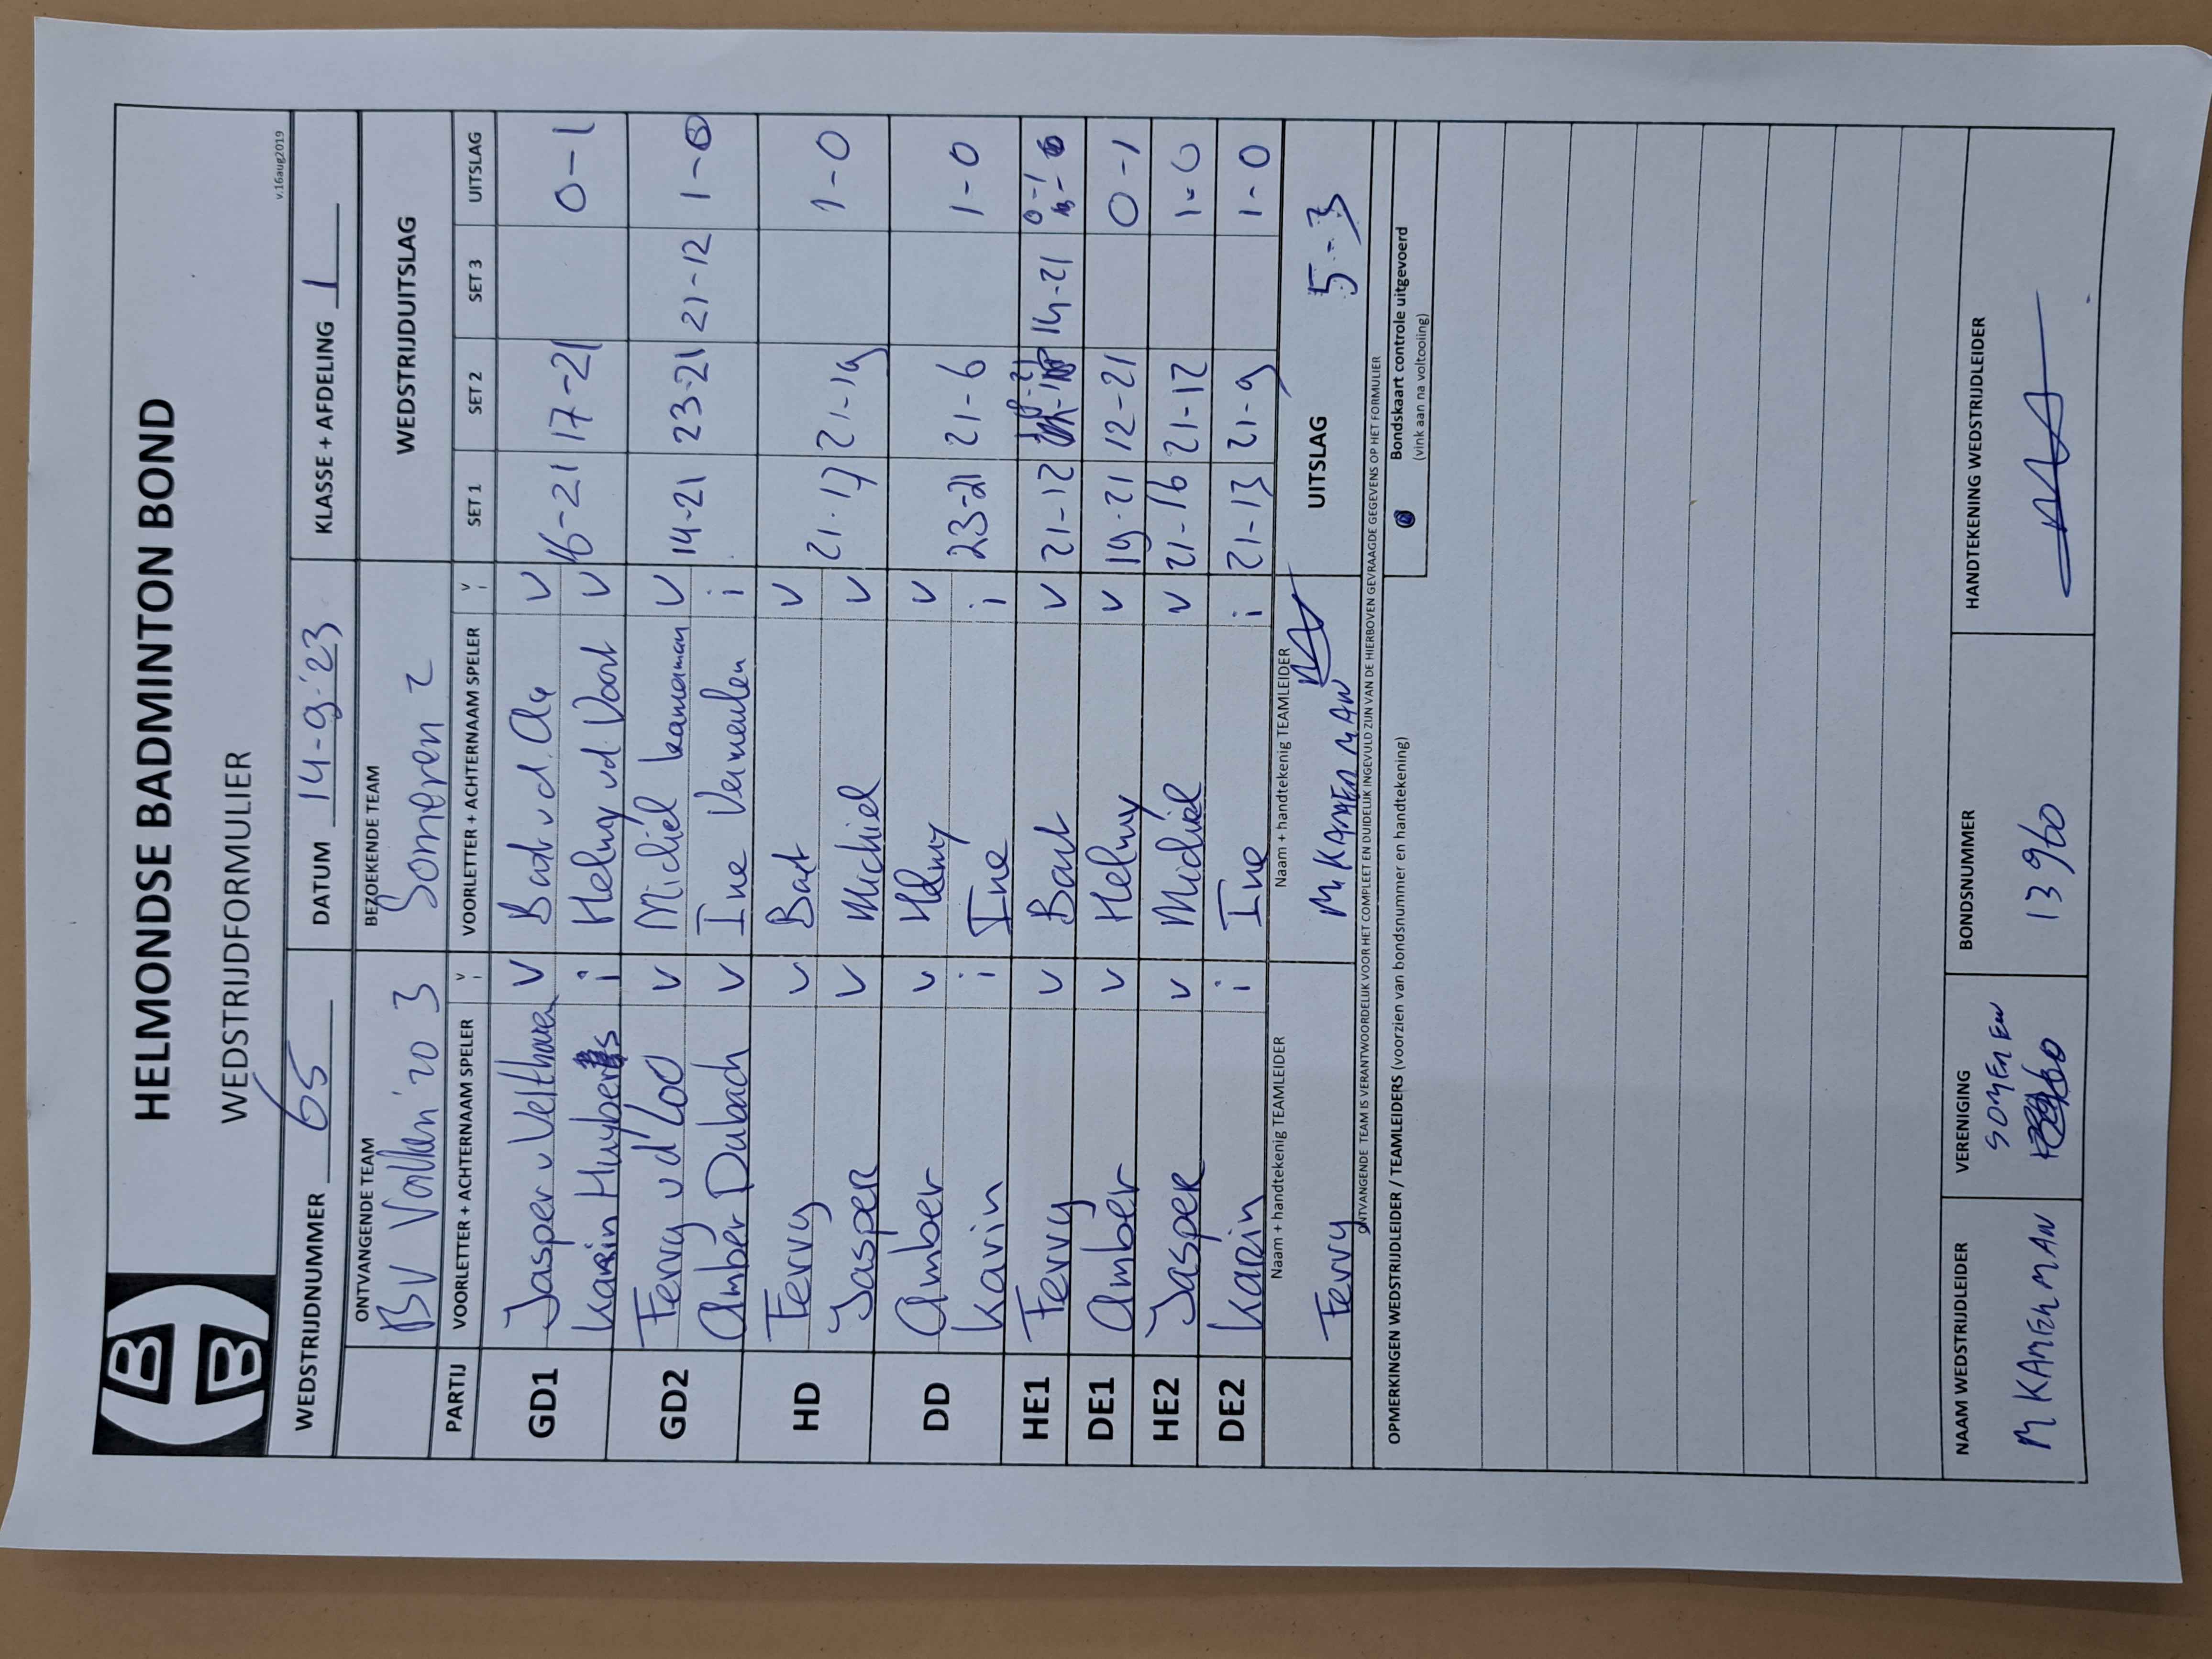 HELMONDSE BADMINTON BOND
WEDSTRIJDFORMULIER
v.16aug2019
WEDSTRIJDNUMMER 65 DATUM 14-9-'23 KLASSE + AFDELING 1
ONTVANGENDE TEAM BEZOEKENDE TEAM WEDSTRIJDUITSLAG
BV Volken '20 3 Someren 2
PARTIJ VOORLETTER + ACHTERNAAM SPELER V i VOORLETTER + ACHTERNAAM SPELER V i SET 1 SET 2 SET 3 UITSLAG
GD1 Jasper v Velthoven V Bart v d. Aa V 16-21 17-21 0-1
Karin Huyberts i Helmy vd. Voort V
GD2 Ferry vd Loo V Michiel Kaneman V 14-21 23-21 21-12 1-0
Amber Dubach V Ine Vermeulen i
HD Ferry V Bart V 21-17 21-19 1-0
Jasper V Michiel V
DD Amber V Helmy V 23-21 21-6 1-0
Karin i Ine i
HE1 Ferry V Bart V 21-12 14-21 0-1
DE1 Amber V Helmy V 19-21 12-21 0-1
HE2 Jasper V Michiel V 21-16 21-12 1-0
DE2 Karin i Ine i 21-13 21-9 1-0
Naam + handtekenig TEAMLEIDER Naam + handtekenig TEAMLEIDER
Ferry M KAMERMAN UITSLAG 5-3
ONTVANGENDE TEAM IS VERANTWOORDELIJK VOOR HET COMPLEET EN DUIDELIJK INGEVULD ZIJN VAN DE HIERBOVEN GEVRAAGDE GEGEVENS OP HET FORMULIER
OPMERKINGEN WEDSTRIJDLEIDER / TEAMLEIDERS (voorzien van bondsnummer en handtekening)
Bondskaart controle uitgevoerd
(vink aan na voltooiing)
NAAM WEDSTRIJDLEIDER VERENIGING BONDSNUMMER HANDTEKENING WEDSTRIJDLEIDER
M KAMERMAN SOMEREN 13960